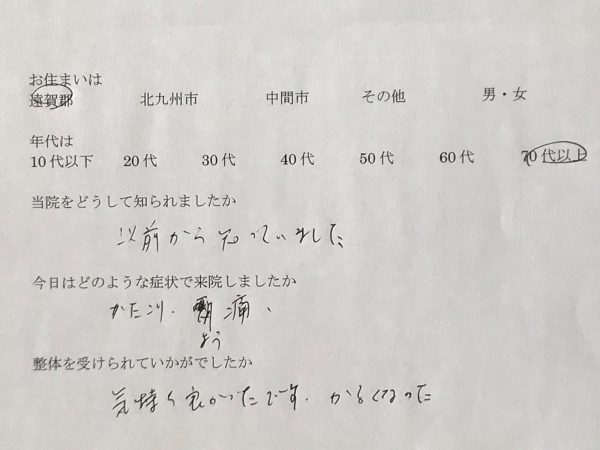 お住まいは
遠賀郡 北九州市 中間市 その他 男・女
年代は
10代以下 20代 30代 40代 50代 60代 70代以上
当院をどうして知られましたか
以前から知っていました
今日はどのような症状で来院しましたか
かたこり、 痛、
よう
整体を受けられていかがでしたか
気持ち良かったです。かるくなった